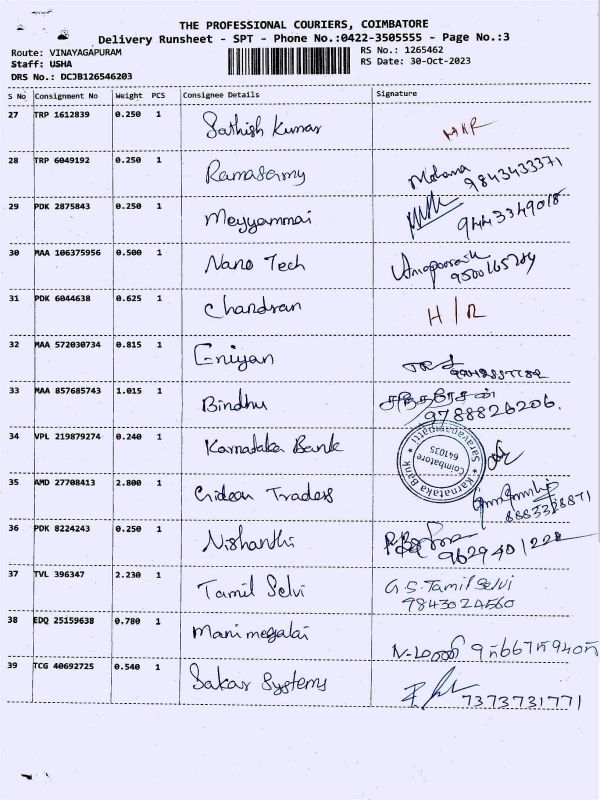 THE PROFESSIONAL COURIERS, COIMBATORE
Delivery Runsheet - SPT - Phone No.:0422-3505555 - Page No.:3
Route: VINAYAGAPURAM
Staff: USHA
DRS No.: DCJB126546203
RS No.: 1265462
RS Date: 30-Oct-2023
S No Consignment No Weight PCS Consignee Details Signature
27 TRP 1612839 0.250 1 Sathish Kumar
28 TRP 6049192 0.250 1 Ramasamy Mohana
9843433371
29 PDK 2875843 0.250 1 Meyyammai
9443349018
30 MAA 106375956 0.500 1 Nano Tech
31 PDK 6044638 0.625 1 Chandran H/R
32 MAA 572030734 0.815 1 Eniyan
33 MAA 857685743 1.015 1 Bindhu
9788826206.
34 VPL 219879274 0.240 1 Karnataka Bank
Karnataka Bank
Saravanampatti
Coimbatore
641035
35 AMD 27708413 2.800 1 Gideon Traders
8883328871
36 PDK 8224243 0.250 1 Nishanthi
9629401222
37 TVL 396347 2.230 1 Tamil Selvi G.S. Tamil Selvi
9843024560
38 EDQ 25159638 0.780 1 Manimegalai
N-மணி
39 TCG 40692725 0.540 1 Sakar Systems
7373731771